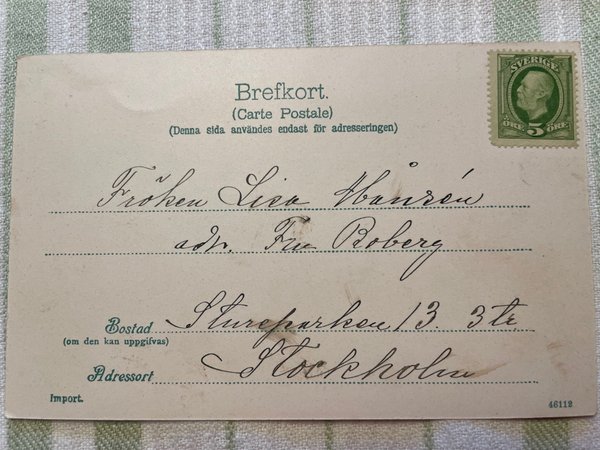 SVERIGE
ÖRE 5 ÖRE
Brefkort.
(Carte Postale)
(Denna sida användes endast för adresseringen)
Fröken Lisa Månzén
adr. Fru Boberg
Bostad Stureparken 13. 3 tr
(om den kan uppgifvas)
Adressort Stockholm
Import. 46112